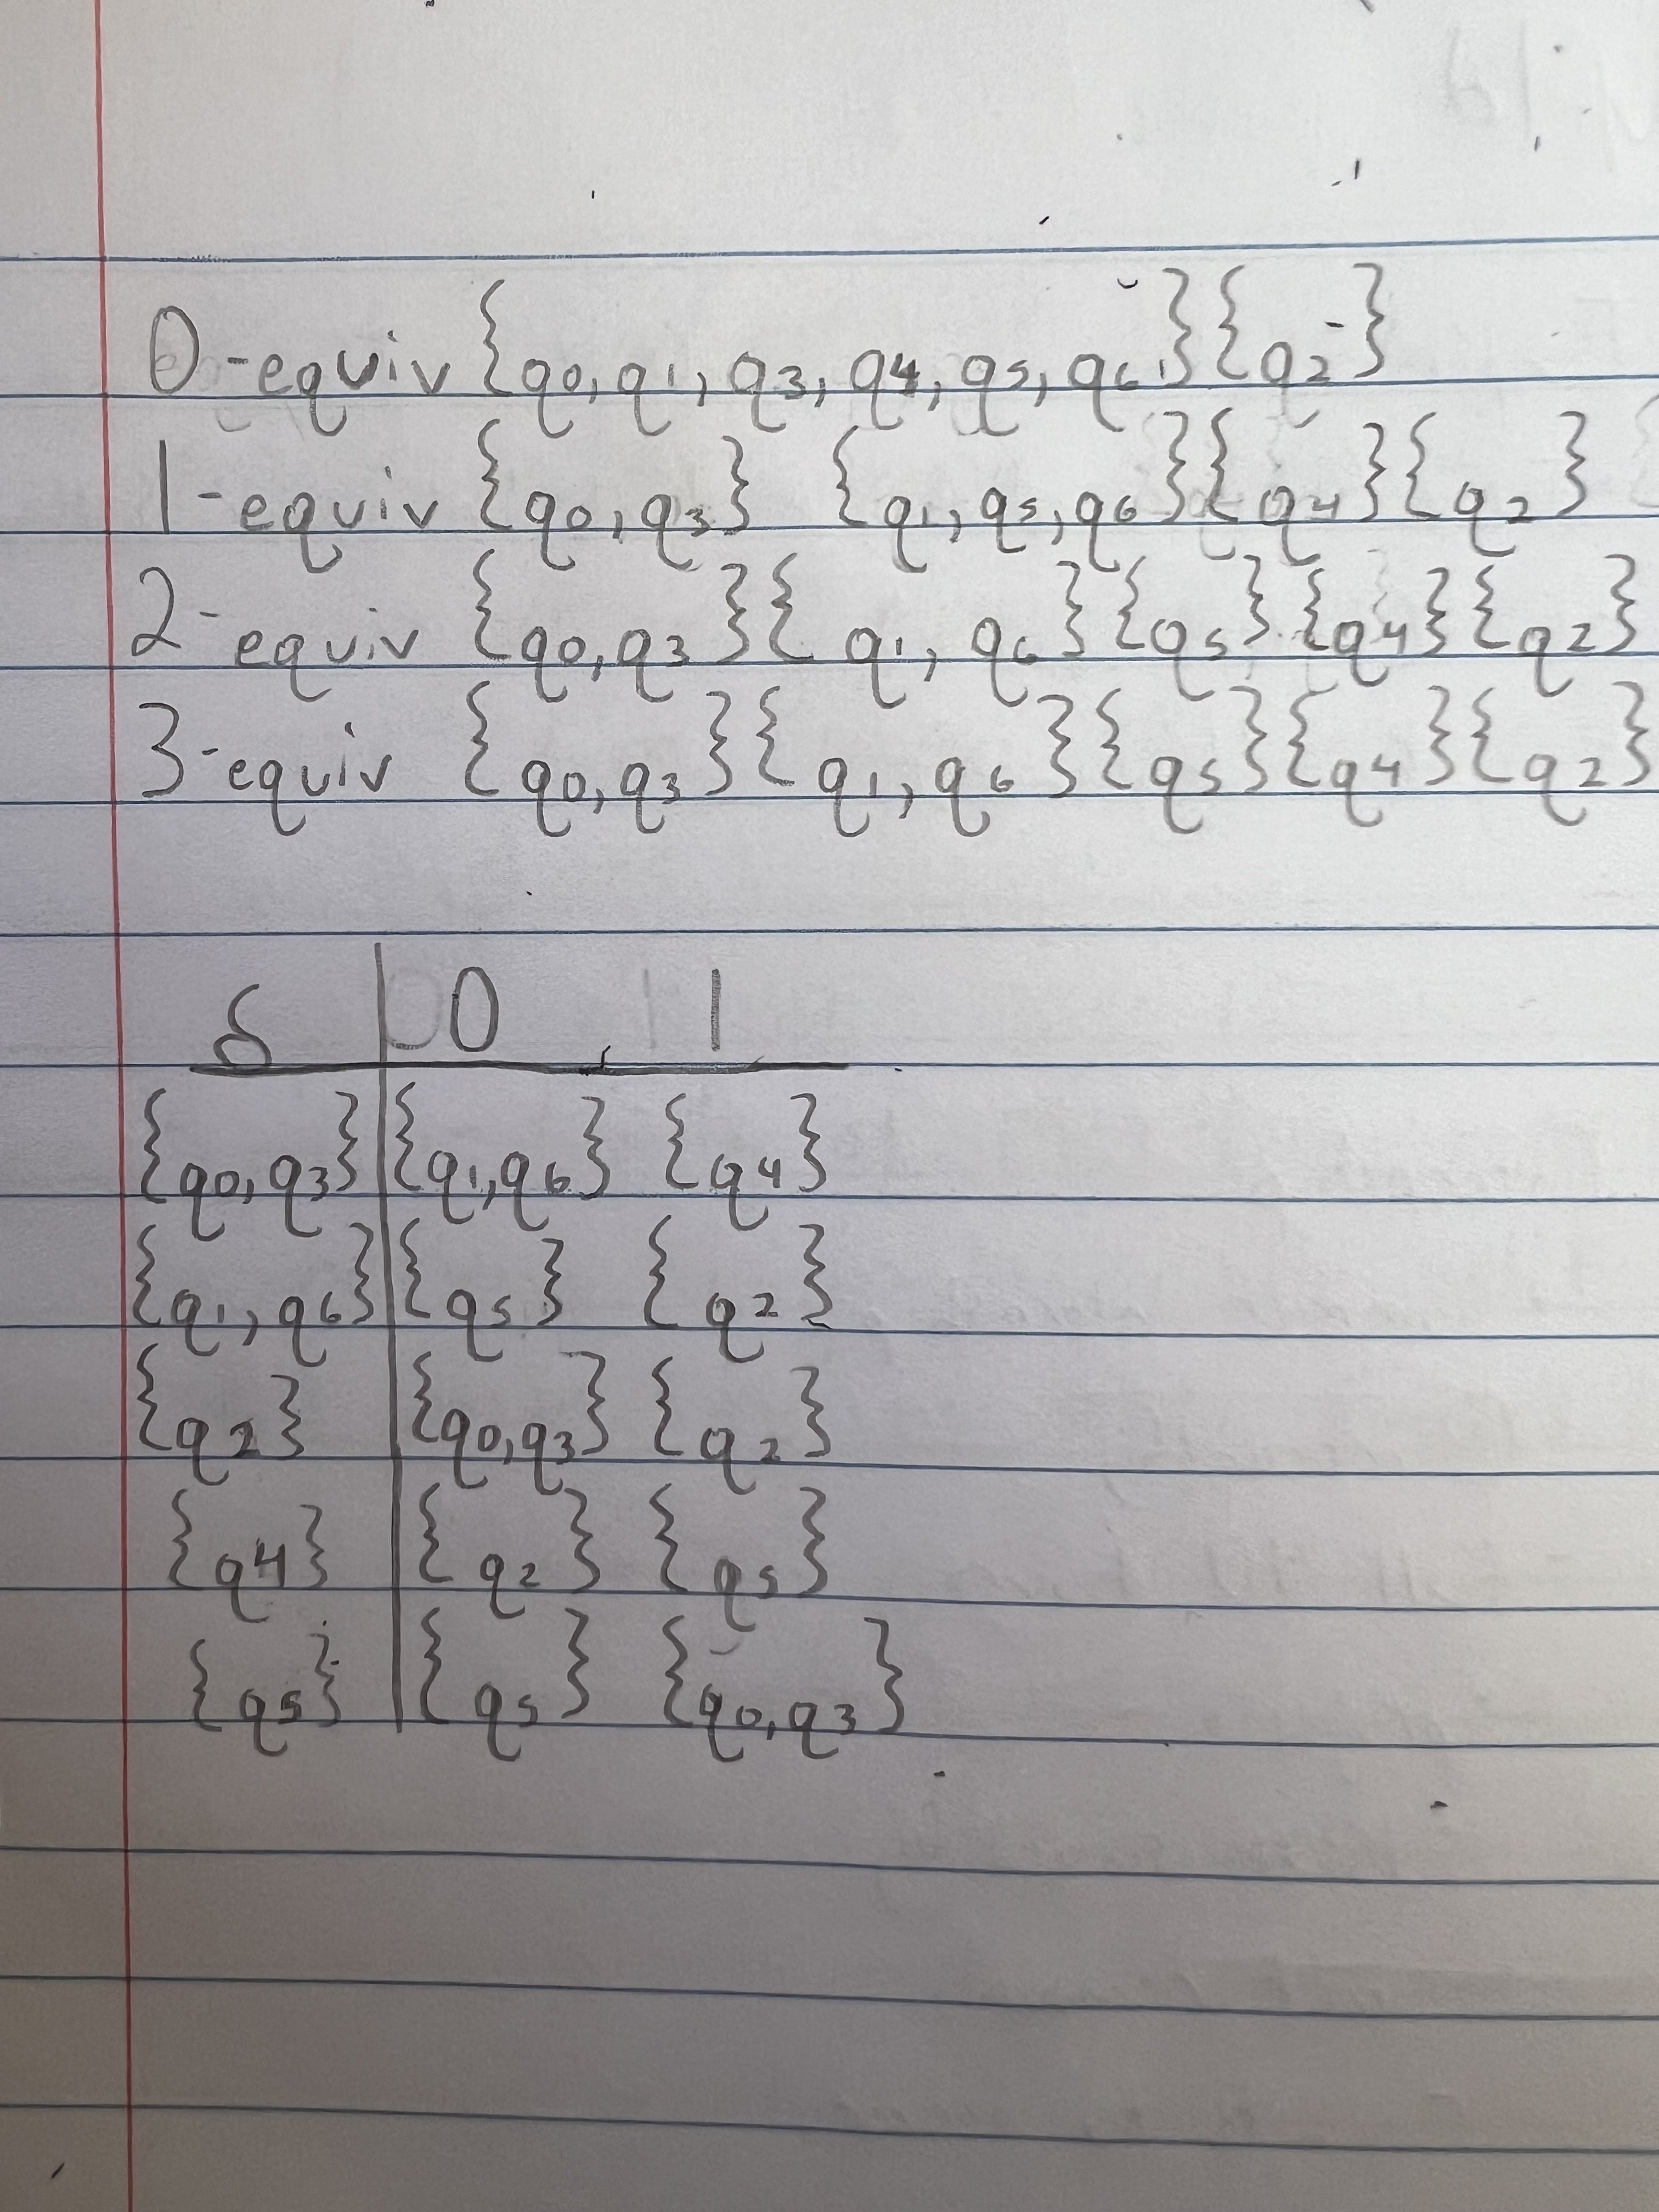 0-equiv {q0, q1, q3, q4, q5, q6}{q2}
1-equiv {q0, q3} {q1, q5, q6}{q4}{q2}
2-equiv {q0, q3}{q1, q6}{q5}{q4}{q2}
3-equiv {q0, q3}{q1, q6}{q5}{q4}{q2}
δ 0 1
{q0, q3} {q1, q6} {q4}
{q1, q6} {q5} {q2}
{q2} {q0, q3} {q2}
{q4} {q2} {q5}
{q5} {q5} {q0, q3}